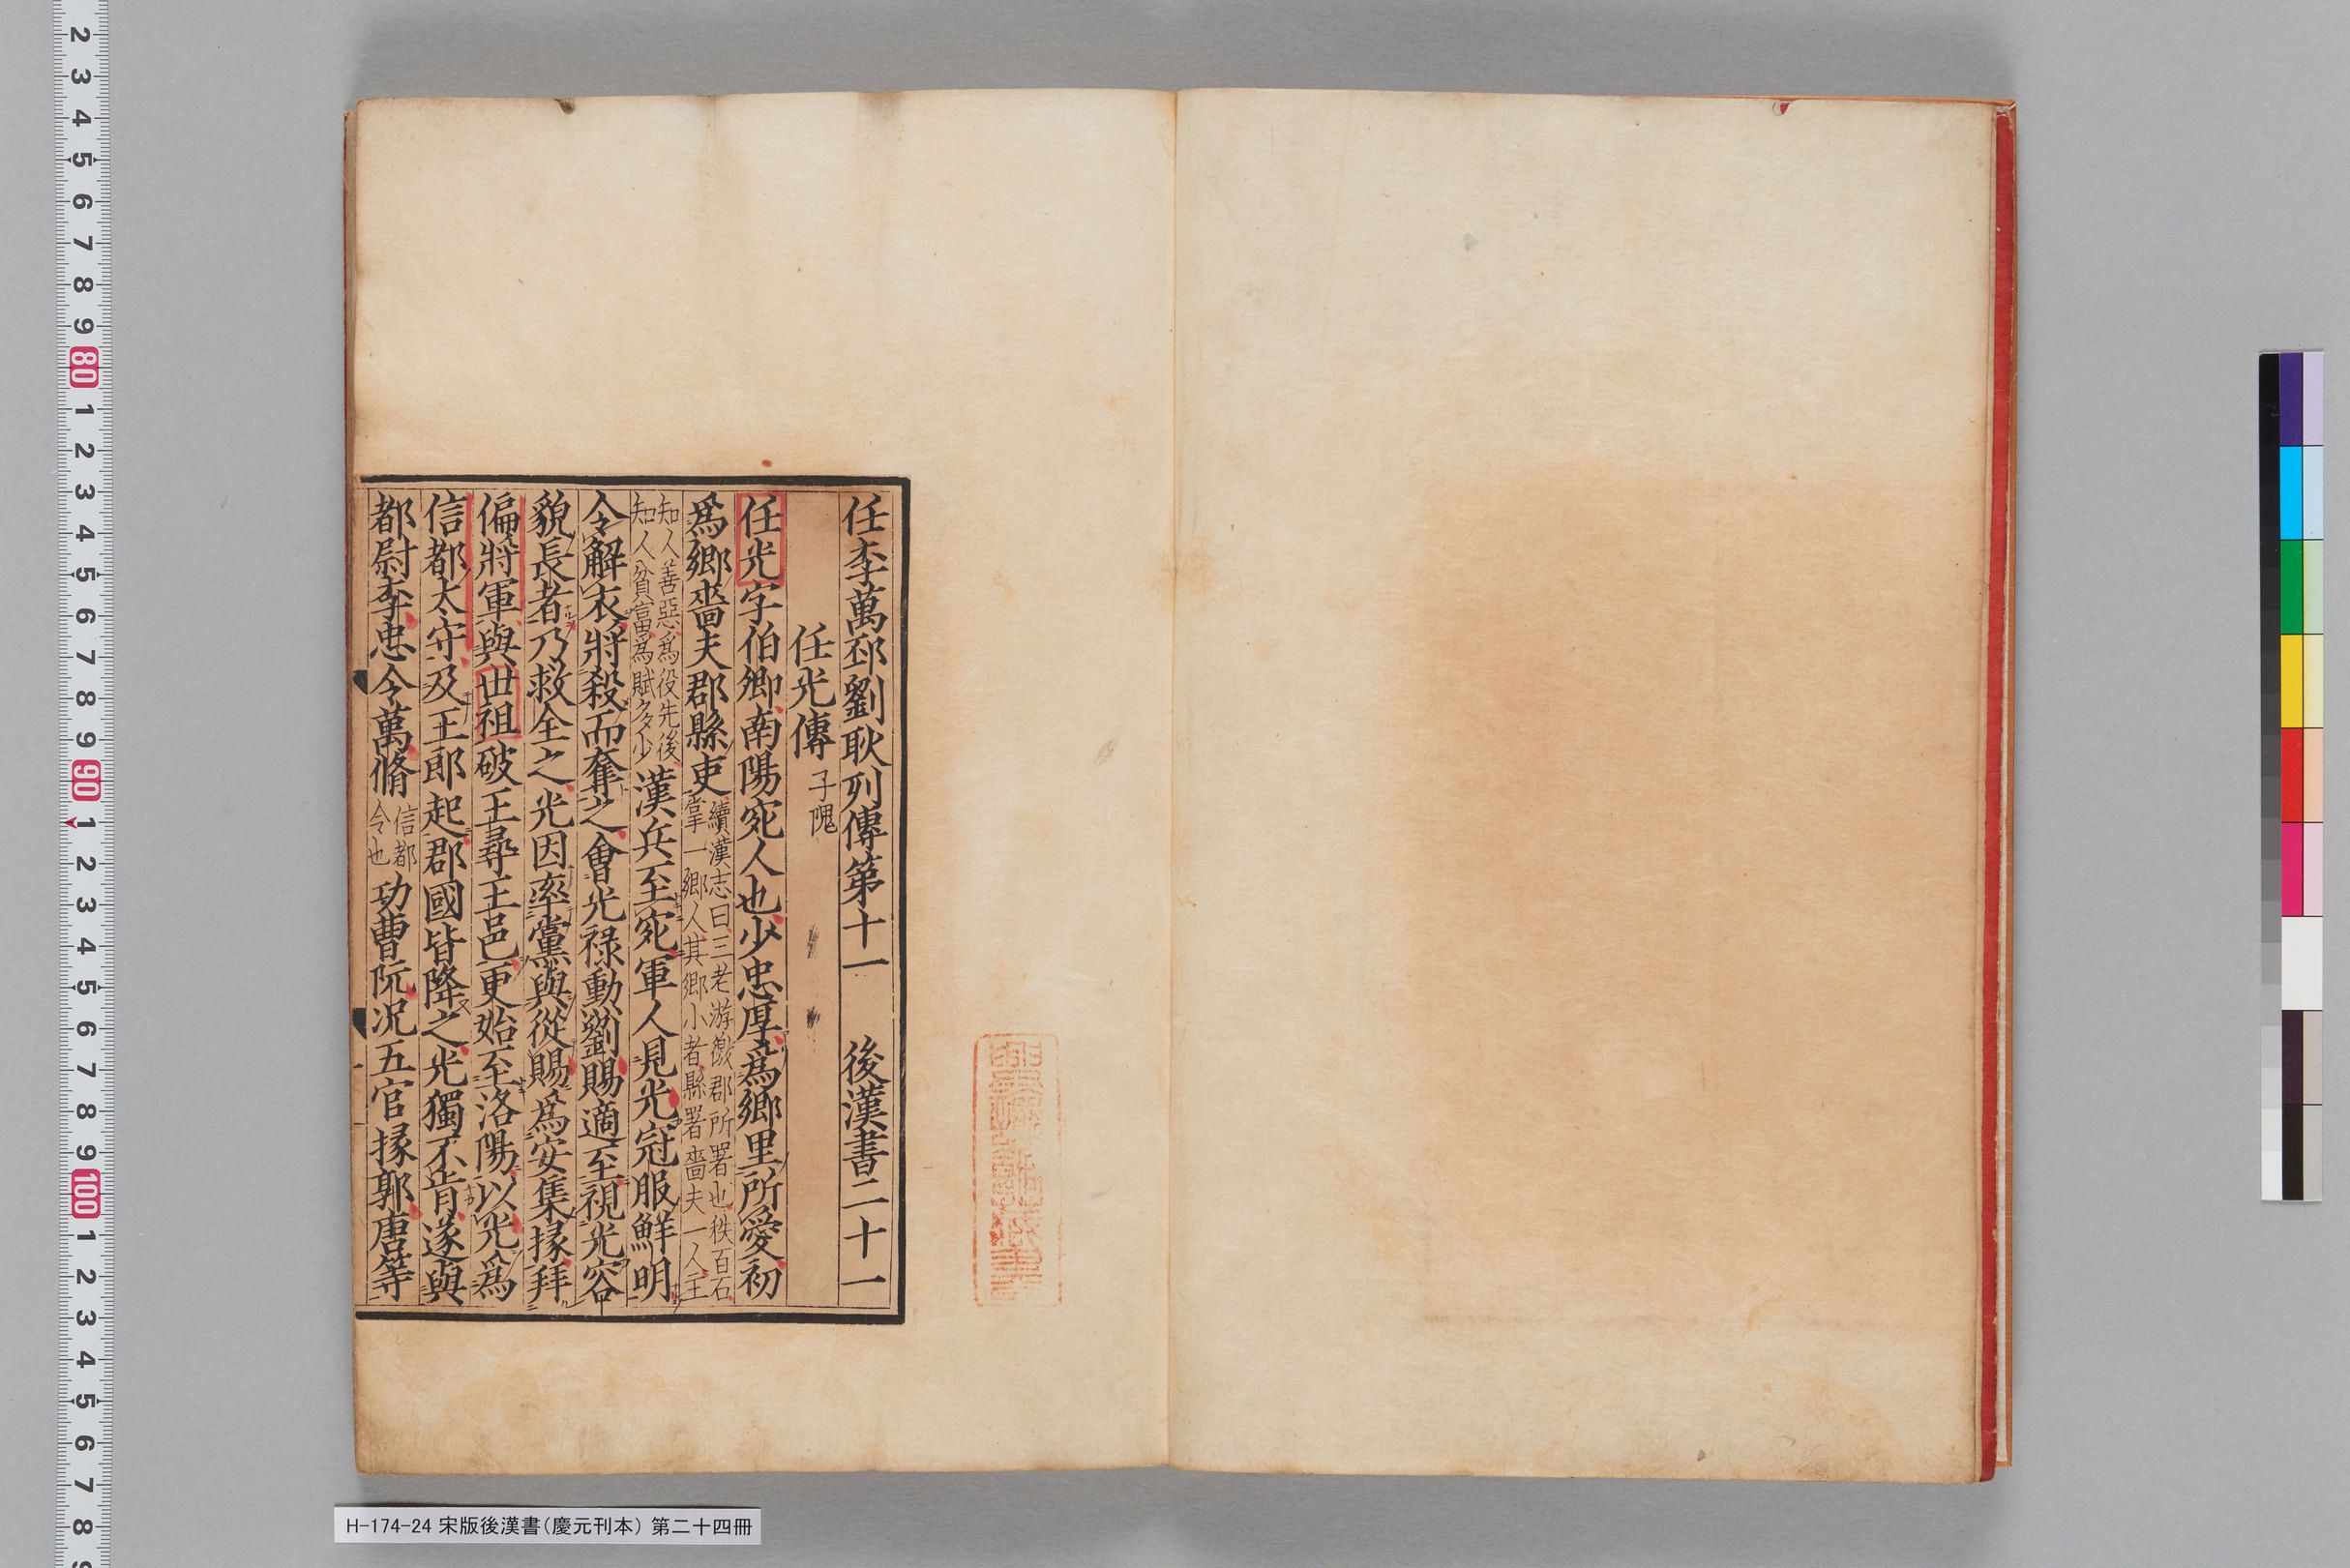 任李萬邳劉耿列傳第十一　後漢書二十一
任光傳 子隗
任光字伯卿南陽宛人也少忠厚爲鄉里所愛初
爲鄉嗇夫郡縣吏續漢志曰三老游徼郡所署也秩百石掌一鄉人其鄉小者縣署嗇夫一人主
知人善惡爲役先後知人貧富爲賦多少漢兵至宛軍人見光冠服鮮明
令解衣將殺而奪之會光祿勳劉賜適至視光容
貌長者乃救全之光因率黨與從賜爲安集掾拜
偏將軍與世祖破王尋王邑更始至洛陽以光爲
信都太守及王郎起郡國皆降之光獨不肯遂與
都尉李忠令萬脩信都令也功曹阮況五官掾郭唐等
H-174-24 宋版後漢書（慶元刊本） 第二十四冊
2 3 4 5 6 7 8 9 80 1 2 3 4 5 6 7 8 9 90 1 2 3 4 5 6 7 8 9 100 1 2 3 4 5 6 7 8 9